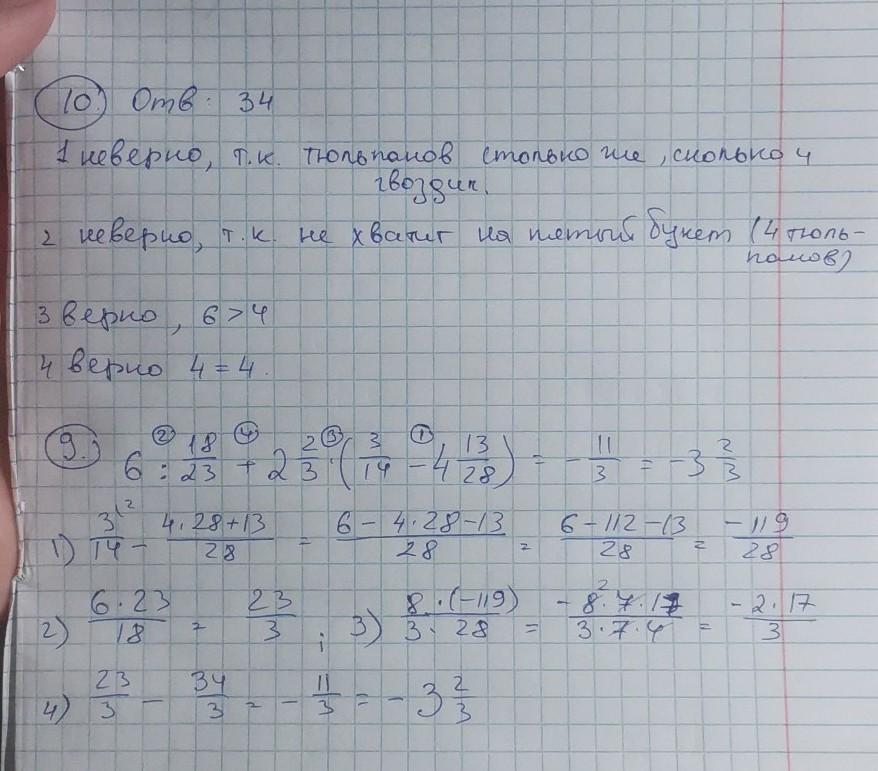 10. Отв: 34
1 неверно, т.к. тюльпанов столько же, сколько и
гвоздик.
2 неверно, т.к. не хватит на пятый букет (4 тюль-
панов)
3 верно, 6 > 4
4 верно 4 = 4.
9. 6 : 18/23 + 2 2/3 · (3/14 − 4 13/28) = − 11/3 = −3 2/3
1) 3/14 − (4·28+13)/28 = (6 − 4·28 − 13)/28 = (6 − 112 − 13)/28 = −119/28
2) 6·23/18 = 23/3 ; 3) 8·(−119)/(3·28) = −8·7·17/(3·7·4) = −2·17/3
4) 23/3 − 34/3 = − 11/3 = − 3 2/3